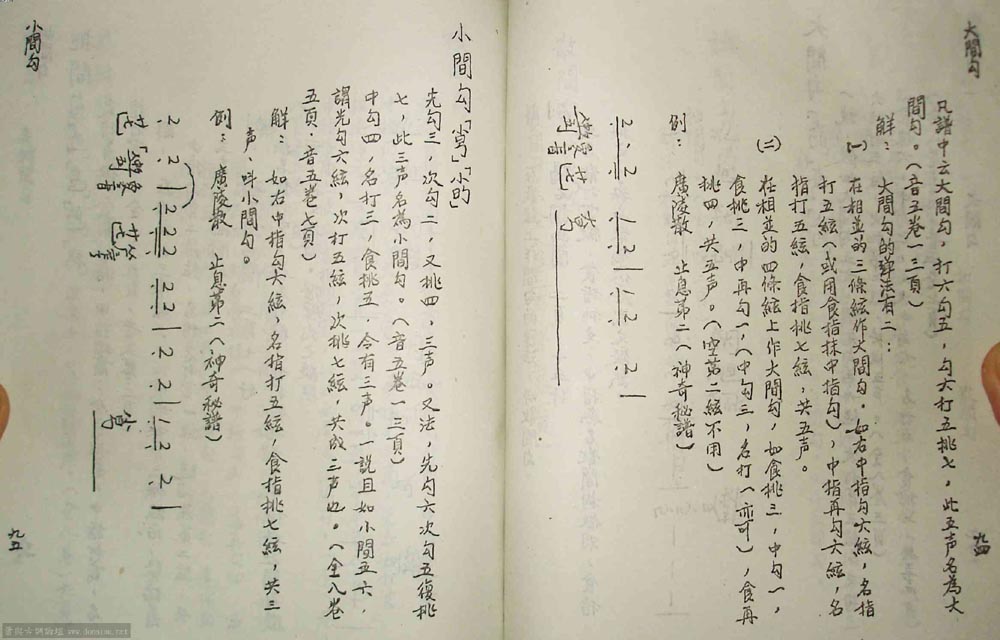 大間勾
凡譜中云大間勾，打六勾五，勾六打五挑七，此五声名為大
間勾。（音五卷一三頁）
解：大間勾的弹法有二：
(一)在相並的三條絃作大間勾，如右中指勾六絃，名指
打五絃（或用食指抹中指勾），中指再勾六絃，名
指打五絃，食指挑七絃，共五声。
(二)在相並的四條絃上作大間勾，如食挑三，中勾一，
食挑三，中再勾一，（中勾三，名打一亦可），食再
挑四，共五声。（空第二絃不用）
例：廣陵散 止息第二（神奇秘譜）
2. 2 | 2 | 2 2. |
九四
小間勾
小間勾「」「小勻」
先勾三，次勾二，又挑四，三声。又法，先勾六次勾五復挑
七，此三声名為小間勾。（音五卷一三頁）
中勾四，名打三，食挑五，令有三声。一說且如小間五六，
謂先勾六絃，次打五絃，次挑七絃，共成三声也。（仝八卷
五頁．音五卷七頁）
解：如右中指勾六絃，名指打五絃，食指挑七絃，共三
声，叫小間勾。
例：廣陵散 止息第二（神奇秘譜）
2. 2 | 2 2 2 2 2 | 2. 2 | 2 2. |
九五